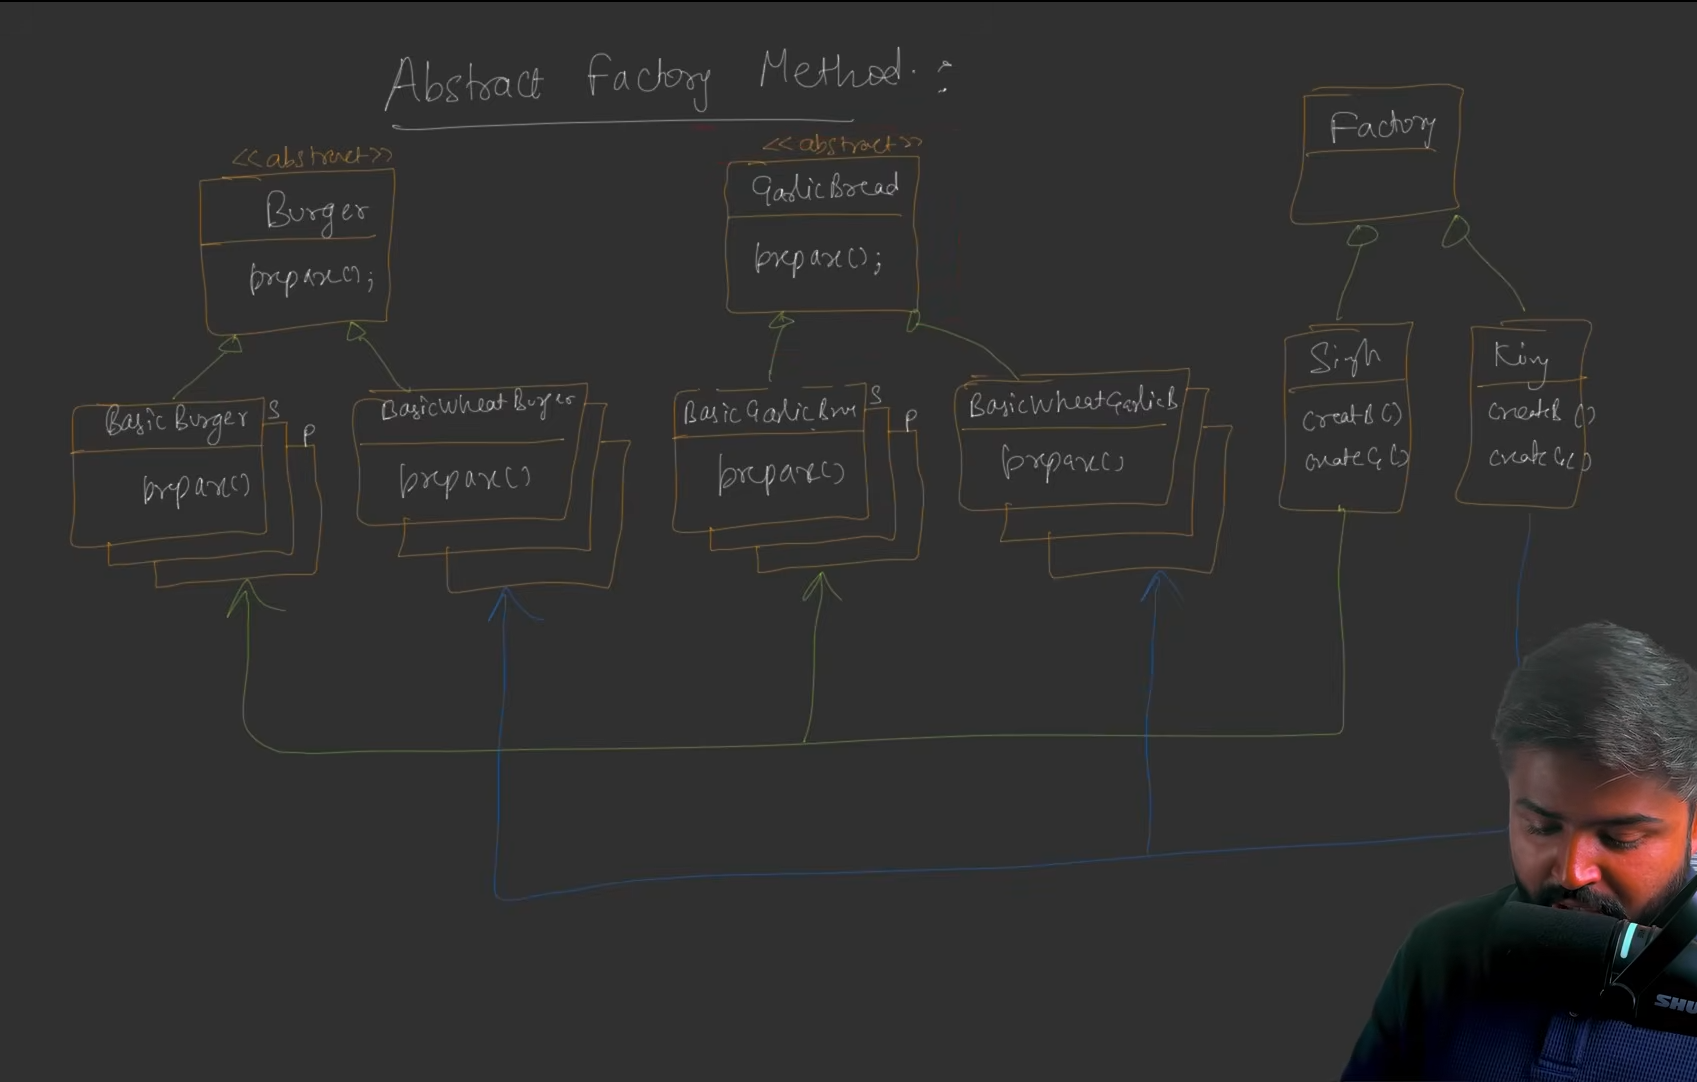 Abstract Factory Method :
<<abstract>>
Burger
prepare();
<<abstract>>
GarlicBread
prepare();
Factory
BasicBurger
S
P
prepare()
BasicWheatBurger
prepare()
BasicGarlicBre
S
P
prepare()
BasicWheatGarlicB
prepare()
Singh
creatB()
createG()
King
createB()
createG()
SHU